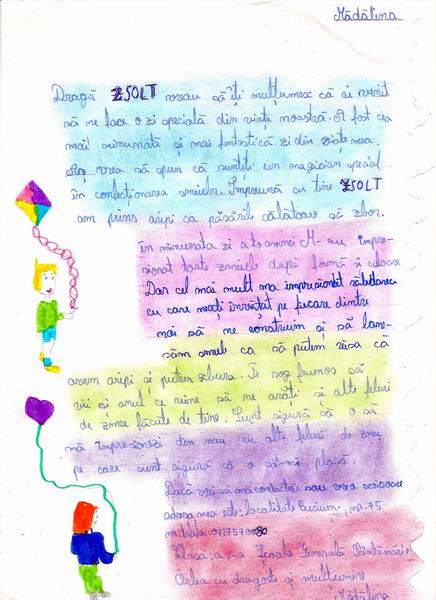 Mădălina
Dragă ZSOLT vreau să îți mulțumesc că ai venit
să ne faci o zi specială din viața noastră. A fost cea
mai minunată și mai fantastică zi din viața mea.
Aș vrea să spun că sunteți un magician special
în confecționarea smeilor. Împreună cu tine ZSOLT
am prins aripi ca păsăril călătoare să zbor.
în minunata zi a toamnei M-au impre-
sionat toate zmeiele după formă și culoare
Dar cel mai mult ma impresionat răbdarea
cu care neați învățat pe fiecare dintre
noi să ne construim și să lan-
săm smeul ca să putem visa că
avem aripi și putem zbura. Te rog frumos să
vii și anul ce vine să ne arăți și alte feluri
de zmee făcute de tine. Sunt sigură că o să
mă impresionezi din nou cu alte feluri de zmee
pe care sunt sigură că o să-mi placă.
Dacă vrei să mă contactezi sau vrea
adresa mea este localitate Bucium, nr. 75
Clasa: a V-a Școala Generală Șântănăi
Orlea cu dragoste și mulțumire
Mădălina